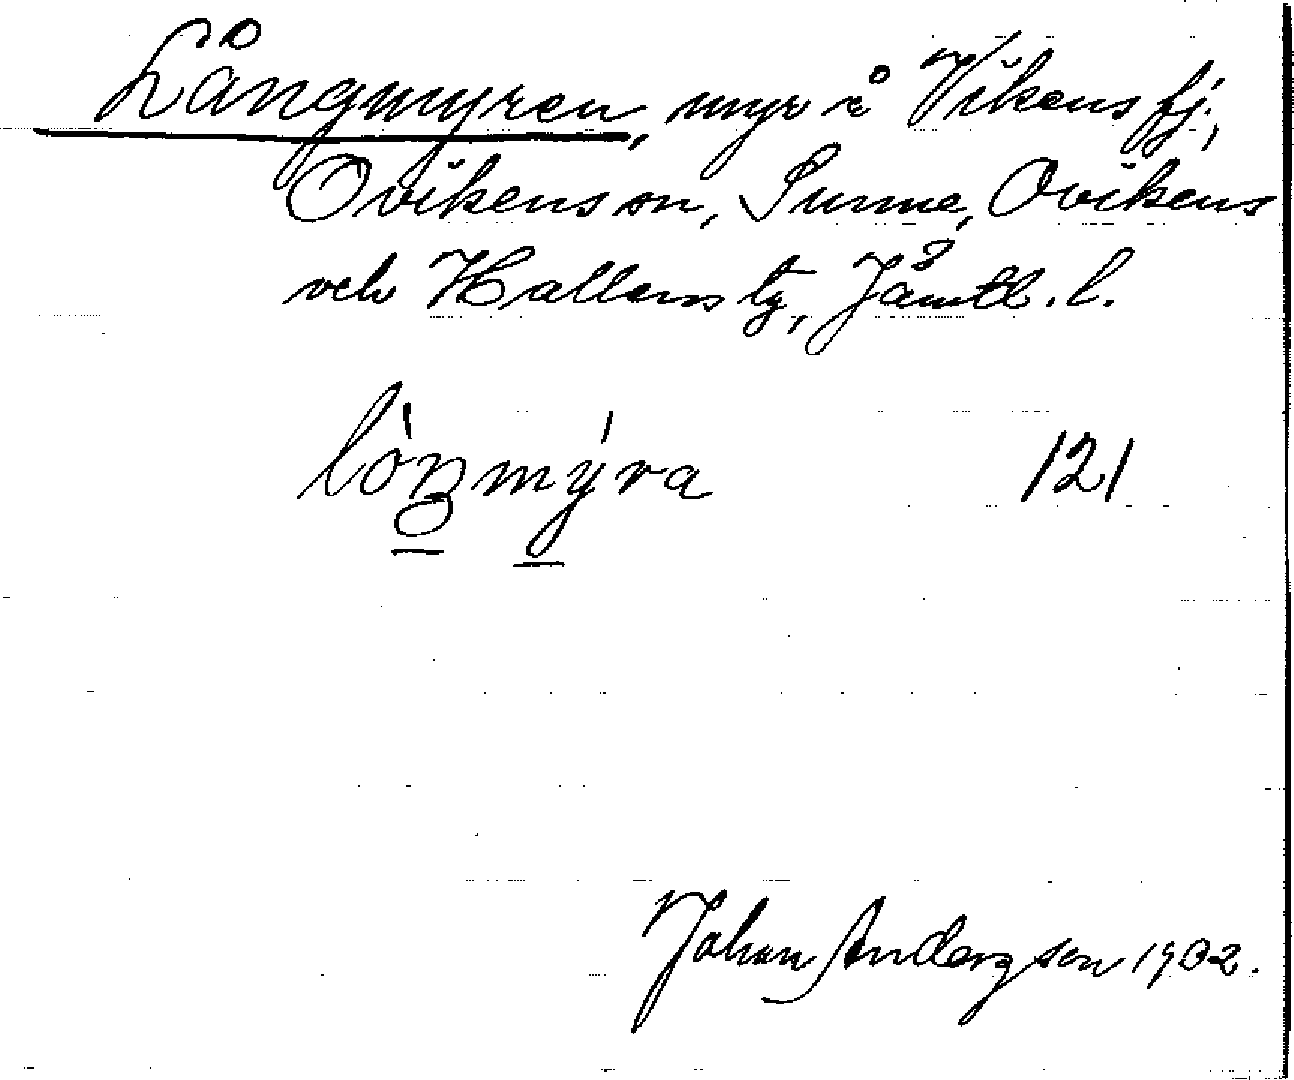 Långmyren, myr å Vikens fj.,
Ovikens sn, Sunne, Ovikens
och Hallens tg, Jämtl. l.
lòŋmýra 121
Johan Anderzson 1902.